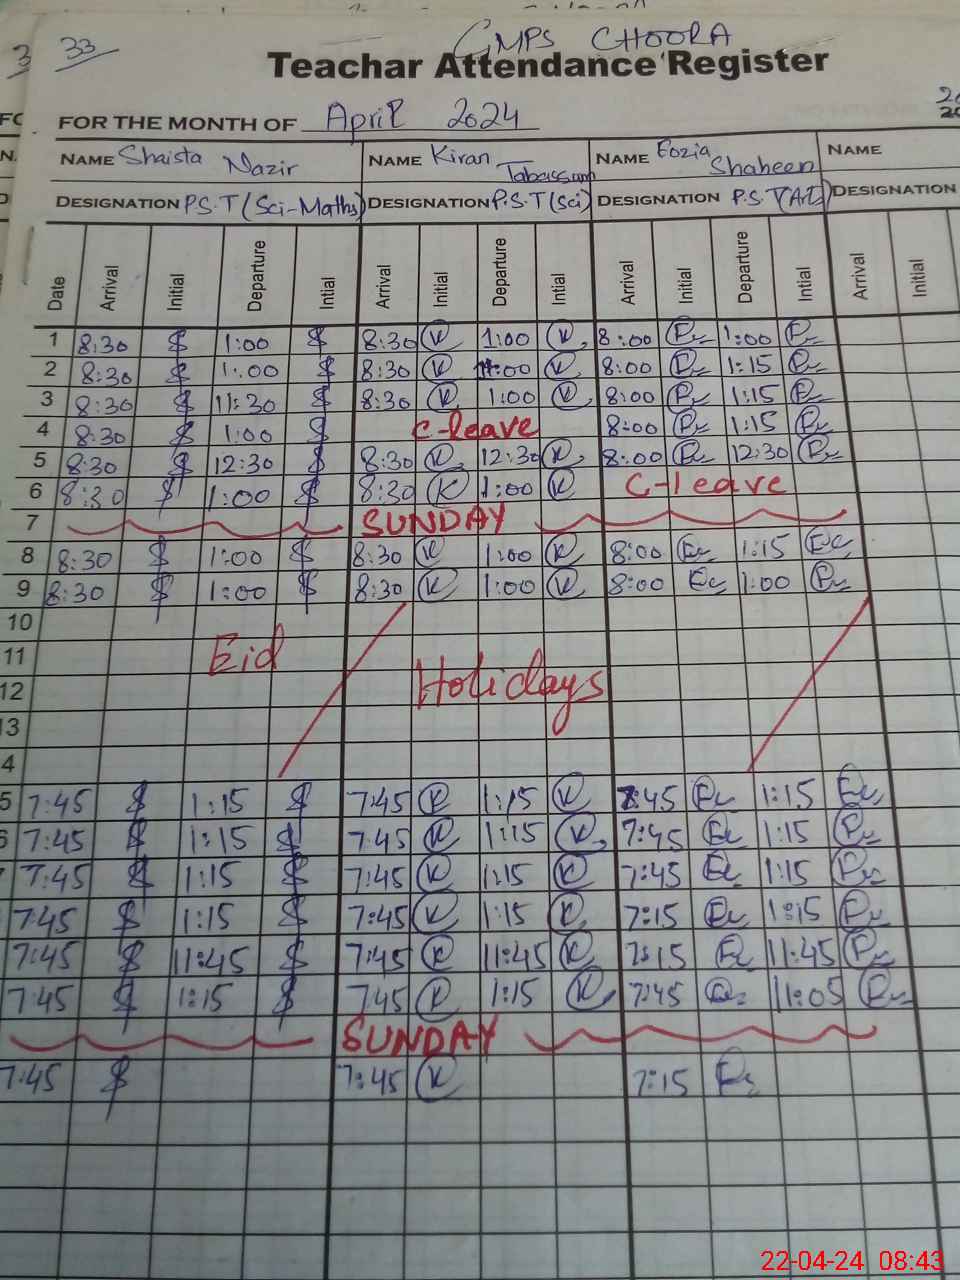 33 GMPS CHOORA
Teachar Attendance Register
FOR THE MONTH OF April 2024
NAME Shaista Nazir NAME Kiran Tabassum NAME Eozia Shaheen NAME
DESIGNATION P.S.T (Sci-Maths) DESIGNATION P.S.T (Sci) DESIGNATION P.S.T (Arts) DESIGNATION
Date Arrival Initial Departure Intial Arrival Initial Departure Intial Arrival Initial Departure Intial Arrival Initial
1 8:30 1:00 8:30 K 1:00 K 8:00 1:00
2 8:30 1:00 8:30 K 1:00 K 8:00 1:15
3 8:30 11:30 8:30 K 1:00 K 8:00 1:15
4 8:30 1:00 C-leave 8:00 1:15
5 8:30 12:30 8:30 K 12:30 K 8:00 12:30
6 8:30 1:00 8:30 K 1:00 K C-leave
7 SUNDAY
8 8:30 1:00 8:30 K 1:00 K 8:00 1:15
9 8:30 1:00 8:30 K 1:00 K 8:00 1:00
10
11 Eid
12 Holidays
13
4
5 7:45 1:15 7:45 K 1:15 K 7:45 1:15
6 7:45 1:15 7:45 K 1:15 K 7:45 1:15
7:45 1:15 7:45 K 1:15 K 7:45 1:15
7:45 1:15 7:45 K 1:15 K 7:15 1:15
7:45 11:45 7:45 K 11:45 K 7:15 11:45
7:45 1:15 745 K 1:15 K 7:45 11:05
SUNDAY
7:45 7:45 K 7:15
22-04-24 08:43